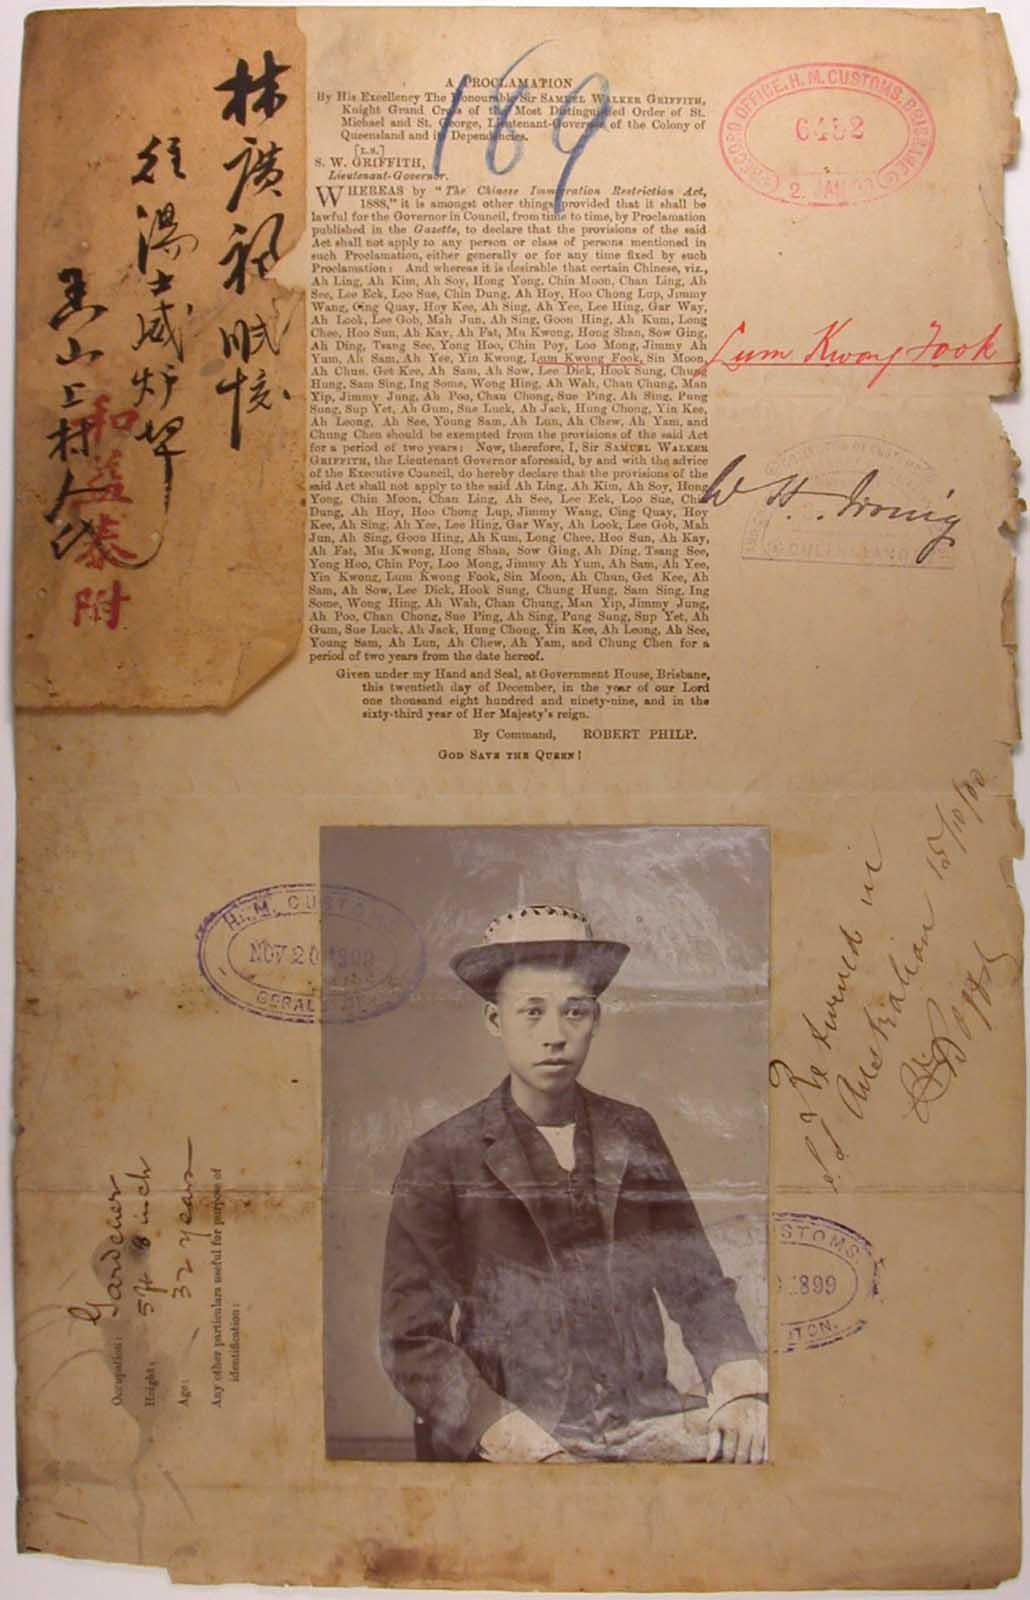 林廣
往湯士威炉埠
山上村人氏
和益泰附
169
A PROCLAMATION
By His Excellency The Honourable Sir SAMUEL WALKER GRIFFITH,
Knight Grand Cross of the Most Distinguished Order of St.
Michael and St. George, Lieutenant-Governor of the Colony of
Queensland and its Dependencies.
[L.S.]
S. W. GRIFFITH,
Lieutenant-Governor.
WHEREAS by "The Chinese Immigration Restriction Act,
1888," it is amongst other things provided that it shall be
lawful for the Governor in Council, from time to time, by Proclamation
published in the Gazette, to declare that the provisions of the said
Act shall not apply to any person or class of persons mentioned in
such Proclamation, either generally or for any time fixed by such
Proclamation: And whereas it is desirable that certain Chinese, viz.,
Ah Ling, Ah Kim, Ah Soy, Hong Yong, Chin Moon, Chan Ling, Ah
See, Lee Eck, Loo Sue, Chin Dung, Ah Hoy, Hoo Chong Lup, Jimmy
Wang, Cing Quay, Hoy Kee, Ah Sing, Ah Yee, Lee Hing, Gar Way,
Ah Look, Lee Gob, Mah Jun, Ah Sing, Goon Hing, Ah Kum, Long
Chee, Hoo Sun, Ah Kay, Ah Fat, Mu Kwong, Hong Shan, Sow Ging,
Ah Ding, Tsang See, Yong Hoo, Chin Poy, Loo Mong, Jimmy Ah
Yum, Ah Sam, Ah Yee, Yin Kwong, Lum Kwong Fook, Sin Moon,
Ah Chun, Get Kee, Ah Sam, Ah Sow, Lee Dick, Hook Sung, Chung
Hung, Sam Sing, Ing Some, Wong Hing, Ah Wah, Chan Chung, Man
Yip, Jimmy Jung, Ah Poo, Chan Chong, Sue Ping, Ah Sing, Pung
Sung, Sup Yet, Ah Gum, Sue Luck, Ah Jack, Hung Chong, Yin Kee,
Ah Leong, Ah See, Young Sam, Ah Lun, Ah Chew, Ah Yam, and
Chung Chen should be exempted from the provisions of the said Act
for a period of two years: Now, therefore, I, Sir SAMUEL WALKER
GRIFFITH, the Lieutenant Governor aforesaid, by and with the advice
of the Executive Council, do hereby declare that the provisions of the
said Act shall not apply to the said Ah Ling, Ah Kim, Ah Soy, Hong
Yong, Chin Moon, Chan Ling, Ah See, Lee Eck, Loo Sue, Chin
Dung, Ah Hoy, Hoo Chong Lup, Jimmy Wang, Cing Quay, Hoy
Kee, Ah Sing, Ah Yee, Lee Hing, Gar Way, Ah Look, Lee Gob, Mah
Jun, Ah Sing, Goon Hing, Ah Kum, Long Chee, Hoo Sun, Ah Kay,
Ah Fat, Mu Kwong, Hong Shan, Sow Ging, Ah Ding, Tsang See,
Yong Hoo, Chin Poy, Loo Mong, Jimmy Ah Yum, Ah Sam, Ah Yee,
Yin Kwong, Lum Kwong Fook, Sin Moon, Ah Chun, Get Kee, Ah
Sam, Ah Sow, Lee Dick, Hook Sung, Chung Hung, Sam Sing, Ing
Some, Wong Hing, Ah Wah, Chan Chung, Man Yip, Jimmy Jung,
Ah Poo, Chan Chong, Sue Ping, Ah Sing, Pung Sung, Sup Yet, Ah
Gum, Sue Luck, Ah Jack, Hung Chong, Yin Kee, Ah Leong, Ah See,
Young Sam, Ah Lun, Ah Chew, Ah Yam, and Chung Chen for a
period of two years from the date hereof.
Given under my Hand and Seal, at Government House, Brisbane,
this twentieth day of December, in the year of our Lord
one thousand eight hundred and ninety-nine, and in the
sixty-third year of Her Majesty's reign.
By Command, ROBERT PHILP.
GOD SAVE THE QUEEN!
RECORD OFFICE, H. M. CUSTOMS, BRISBANE
6482
2. JAN
Lum Kwong Fook
W H. Irving
QUEENSLAND
H. M. CUSTOMS
NOV 20 1899
GERALDTON
Returned in
S.S Australian 15/10/00
STOMS
1899
TON.
Occupation: Gardener
Height: 5 ft 8 inch
Age: 32 years
Any other particulars useful for purpose of
identification: